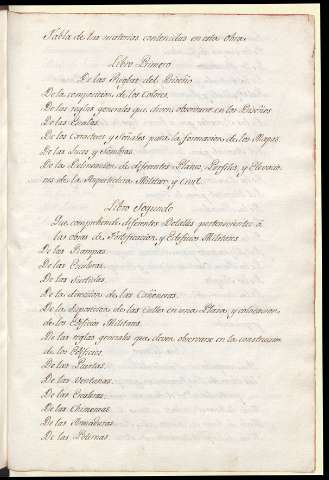 Tabla de las materias contenidas en esta Obra
Libro Primero
De las Reglas del Diseño
De la composicion de los Colores.
De las reglas generales que deven observarse en los Diseños
De las Escalas.
De los Caracteres y Señales para la formacion de los Mapas.
De las Luces y Sombras.
De la Delineacion de diferentes Planos, Perfiles, y Elevacio-
nes de la Arquitectura Militar, y Civil.
Libro Segundo
Que comprehende diferentes Detalles pertenecientes á
las obras de Fortificacion, y Edificios Militares.
De las Rampas.
De las Escaleras.
De las
De la direccion de las Cañoneras.
De la disposicion de las Calles en una Plaza y colocacion
de los Edificios Militares.
De las reglas generales que deven observarse en la construccion
de los Edificios.
De las Puertas.
De las Ventanas.
De las Escaleras.
De las Chimeneas.
De las Armaduras.
De las